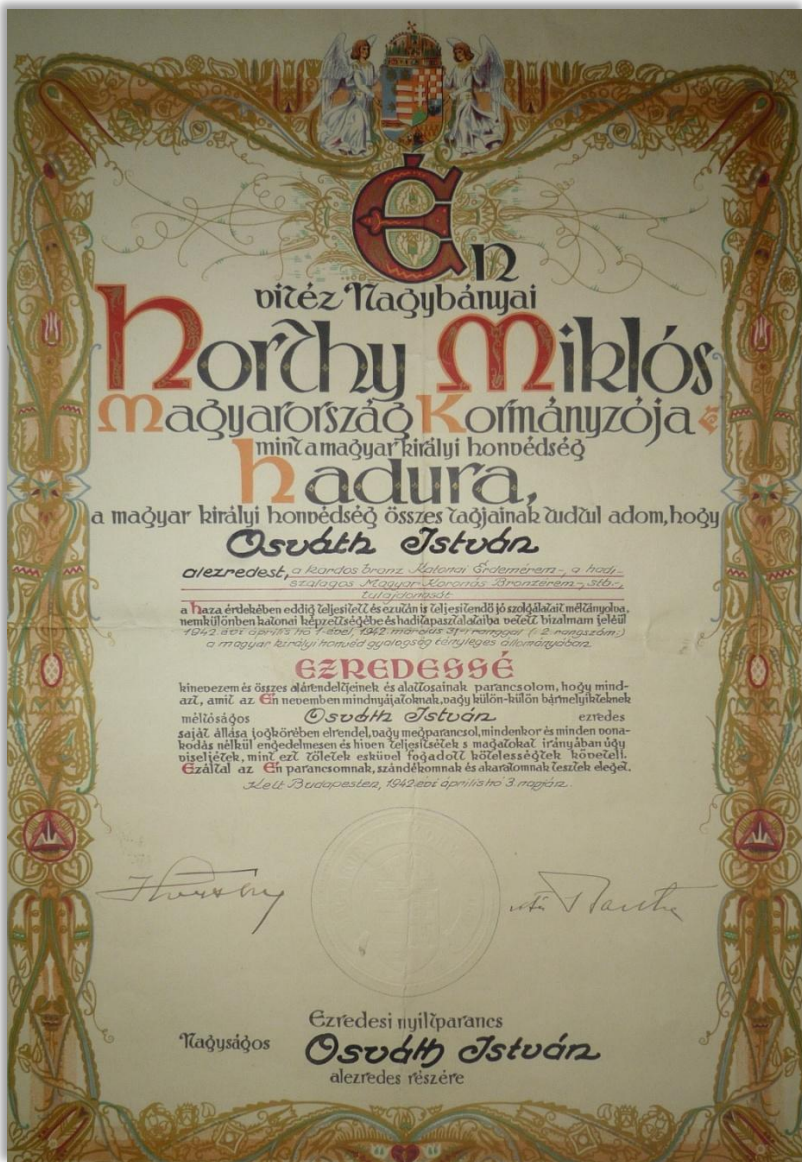 Én
vitéz Nagybányai
Horthy Miklós
Magyarország Kormányzója
mint a magyar királyi honvédség
hadura,
a magyar királyi honvédség összes tagjainak tudtul adom, hogy
Osváth István
alezredest, a kardos bronz Katonai Érdemérem-, a hadi-
szalagos Magyar Koronás Bronzérem-, stb.-,
tulajdonosát
a haza érdekében eddig teljesített és ezután is teljesítendő jó szolgálatait méltányolva,
nemkülönben katonai képzettségébe és haditapasztalataiba vetett bizalmam jeléül
1942 évi április hó 1-ével, 1942 március 31-i ranggal (: 2 rangszám :)
a magyar királyi honvéd gyalogság tényleges állományában
EZREDESSÉ
kinevezem és összes alárendeltjeinek és alattosainak parancsolom, hogy mind-
azt, amit az Én nevemben mindnyájatoknak, vagy külön-külön bármelyikteknek
méltóságos Osváth István ezredes
saját állása jogkörében elrendel, vagy megparancsol, mindenkor és minden vona-
kodás nélkül engedelmesen és híven teljesítsétek s magatokat irányában úgy
viseljétek, mint ezt tőletek esküvel fogadott kötelességtek követeli.
Ezáltal az Én parancsomnak, szándékomnak és akaratomnak tesztek eleget.
Kelt Budapesten, 1942 évi április hó 3. napján.
Horthy
vitéz Bartha
Ezredesi nyíltparancs
Nagyságos Osváth István
alezredes részére